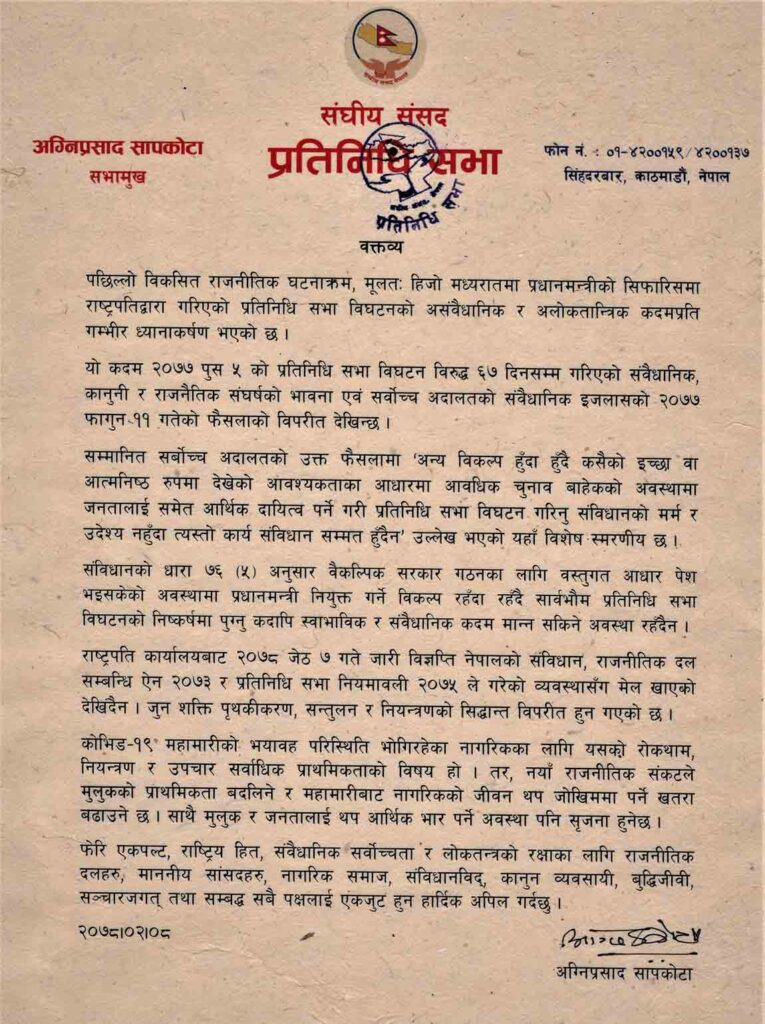 संघीय संसद
अग्निप्रसाद सापकोटा
सभामुख
प्रतिनिधि सभा
फोन नं. : ०१-४२००१५९/४२००१३७
सिंहदरबार, काठमाडौं, नेपाल
प्रतिनिधि सभा
वक्तव्य
पछिल्लो विकसित राजनीतिक घटनाक्रम, मूलतः हिजो मध्यरातमा प्रधानमन्त्रीको सिफारिसमा
राष्ट्रपतिद्वारा गरिएको प्रतिनिधि सभा विघटनको असंवैधानिक र अलोकतान्त्रिक कदमप्रति
गम्भीर ध्यानाकर्षण भएको छ ।
यो कदम २०७७ पुस ५ को प्रतिनिधि सभा विघटन विरुद्ध ६७ दिनसम्म गरिएको संवैधानिक,
कानुनी र राजनैतिक संघर्षको भावना एवं सर्वोच्च अदालतको संवैधानिक इजलासको २०७७
फागुन ११ गतेको फैसलाको विपरीत देखिन्छ ।
सम्मानित सर्बोच्च अदालतको उक्त फैसलामा ‘अन्य विकल्प हुँदा हुँदै कसैको इच्छा वा
आत्मनिष्ठ रुपमा देखेको आवश्यकताका आधारमा आवधिक चुनाव बाहेकको अवस्थामा
जनतालाई समेत आर्थिक दायित्व पर्ने गरी प्रतिनिधि सभा विघटन गरिनु संविधानको मर्म र
उदेश्य नहुँदा त्यस्तो कार्य संविधान सम्मत हुँदैन’ उल्लेख भएको यहाँ विशेष स्मरणीय छ ।
संविधानको धारा ७६ (५) अनुसार वैकल्पिक सरकार गठनका लागि वस्तुगत आधार पेश
भइसकेको अवस्थामा प्रधानमन्त्री नियुक्त गर्ने विकल्प रहँदा रहँदै सार्वभौम प्रतिनिधि सभा
विघटनको निष्कर्षमा पुग्नु कदापि स्वाभाविक र संवैधानिक कदम मान्न सकिने अवस्था रहँदैन ।
राष्ट्रपति कार्यालयबाट २०७८ जेठ ७ गते जारी विज्ञप्ति नेपालको संविधान, राजनीतिक दल
सम्बन्धि ऐन २०७३ र प्रतिनिधि सभा नियमावली २०७५ ले गरेको व्यवस्थासँग मेल खाएको
देखिदैन । जुन शक्ति पृथकीकरण, सन्तुलन र नियन्त्रणको सिद्धान्त विपरीत हुन गएको छ ।
कोभिड-१९ महामारीको भयावह परिस्थिति भोगिरहेका नागरिकका लागि यसको रोकथाम,
नियन्त्रण र उपचार सर्वाधिक प्राथमिकताको विषय हो । तर, नयाँ राजनीतिक संकटले
मुलुकको प्राथमिकता बदलिने र महामारीबाट नागरिकको जीवन थप जोखिममा पर्ने खतरा
बढाउने छ । साथै मुलुक र जनतालाई थप आर्थिक भार पर्ने अवस्था पनि सृजना हुनेछ ।
फेरि एकपल्ट, राष्ट्रिय हित, संवैधानिक सर्वोच्चता र लोकतन्त्रको रक्षाका लागि राजनीतिक
दलहरु, माननीय सांसदहरु, नागरिक समाज, संविधानविद्, कानुन व्यवसायी, बुद्धिजीवी,
सञ्चारजगत् तथा सम्बद्ध सबै पक्षलाई एकजुट हुन हार्दिक अपिल गर्दछु ।
२०७८।०२।०८
अग्निप्रसाद सापकोटा